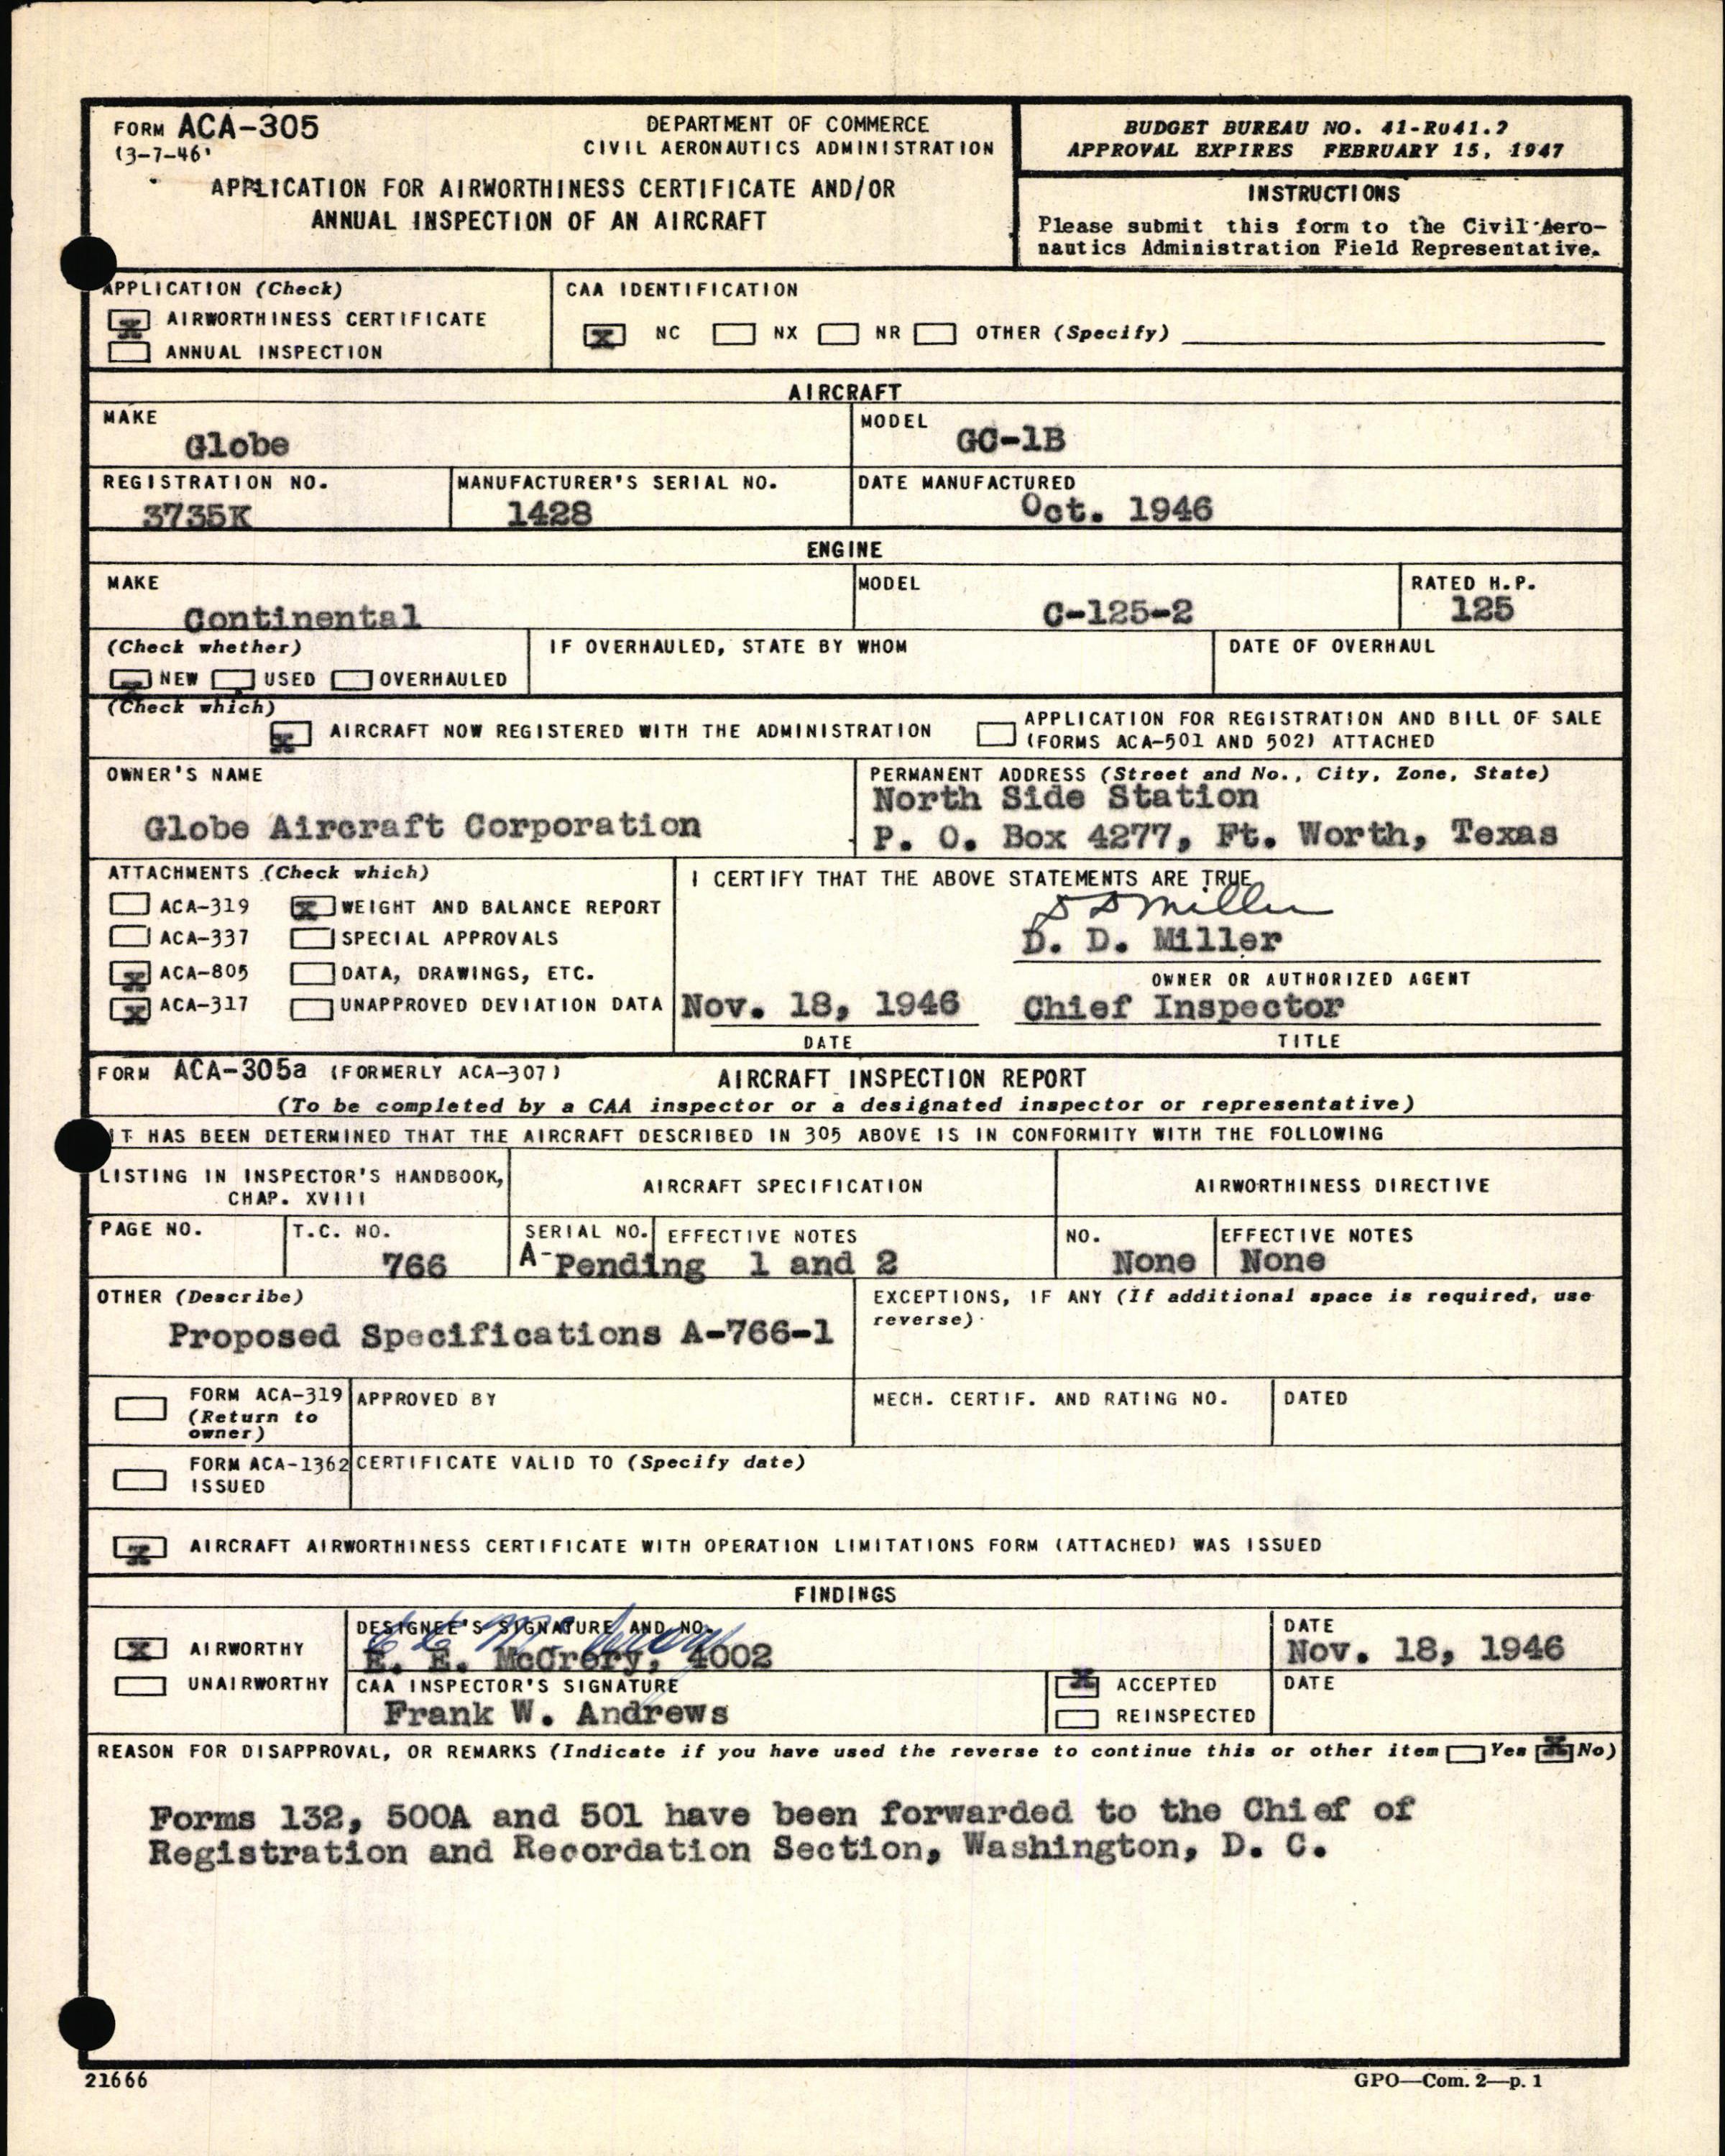 FORM ACA-305
(3-7-46)
DEPARTMENT OF COMMERCE
CIVIL AERONAUTICS ADMINISTRATION
APPLICATION FOR AIRWORTHINESS CERTIFICATE AND/OR
ANNUAL INSPECTION OF AN AIRCRAFT
BUDGET BUREAU NO. 41-R041.2
APPROVAL EXPIRES FEBRUARY 15, 1947
INSTRUCTIONS
Please submit this form to the Civil Aero-
nautics Administration Field Representative.
APPLICATION (Check)
X AIRWORTHINESS CERTIFICATE
ANNUAL INSPECTION
CAA IDENTIFICATION
X NC NX NR OTHER (Specify)
AIRCRAFT
MAKE
Globe
MODEL
GC-1B
REGISTRATION NO.
3735K
MANUFACTURER'S SERIAL NO.
1428
DATE MANUFACTURED
Oct. 1946
ENGINE
MAKE
Continental
MODEL
C-125-2
RATED H.P.
125
(Check whether)
NEW USED OVERHAULED
IF OVERHAULED, STATE BY WHOM
DATE OF OVERHAUL
(Check which)
X AIRCRAFT NOW REGISTERED WITH THE ADMINISTRATION
APPLICATION FOR REGISTRATION AND BILL OF SALE
(FORMS ACA-501 AND 502) ATTACHED
OWNER'S NAME
Globe Aircraft Corporation
PERMANENT ADDRESS (Street and No., City, Zone, State)
North Side Station
P. O. Box 4277, Ft. Worth, Texas
ATTACHMENTS (Check which)
ACA-319 X WEIGHT AND BALANCE REPORT
ACA-337 SPECIAL APPROVALS
X ACA-805 DATA, DRAWINGS, ETC.
X ACA-317 UNAPPROVED DEVIATION DATA
I CERTIFY THAT THE ABOVE STATEMENTS ARE TRUE
D D Miller
D. D. Miller
OWNER OR AUTHORIZED AGENT
Nov. 18, 1946 Chief Inspector
DATE TITLE
FORM ACA-305a (FORMERLY ACA-307) AIRCRAFT INSPECTION REPORT
(To be completed by a CAA inspector or a designated inspector or representative)
IT HAS BEEN DETERMINED THAT THE AIRCRAFT DESCRIBED IN 305 ABOVE IS IN CONFORMITY WITH THE FOLLOWING
LISTING IN INSPECTOR'S HANDBOOK,
CHAP. XVIII
AIRCRAFT SPECIFICATION
AIRWORTHINESS DIRECTIVE
PAGE NO.
T.C. NO.
766
SERIAL NO.
A-Pending
EFFECTIVE NOTES
1 and 2
NO.
None
EFFECTIVE NOTES
None
OTHER (Describe)
Proposed Specifications A-766-1
EXCEPTIONS, IF ANY (If additional space is required, use
reverse)
FORM ACA-319
(Return to
owner)
APPROVED BY
MECH. CERTIF. AND RATING NO.
DATED
FORM ACA-1362
ISSUED
CERTIFICATE VALID TO (Specify date)
X AIRCRAFT AIRWORTHINESS CERTIFICATE WITH OPERATION LIMITATIONS FORM (ATTACHED) WAS ISSUED
FINDINGS
X AIRWORTHY
UNAIRWORTHY
DESIGNEE'S SIGNATURE AND NO.
E E McCrory
E. E. McCrory, 4002
DATE
Nov. 18, 1946
CAA INSPECTOR'S SIGNATURE
Frank W. Andrews
X ACCEPTED
REINSPECTED
DATE
REASON FOR DISAPPROVAL, OR REMARKS (Indicate if you have used the reverse to continue this or other item Yes X No)
Forms 132, 500A and 501 have been forwarded to the Chief of
Registration and Recordation Section, Washington, D. C.
21666
GPO—Com. 2—p. 1